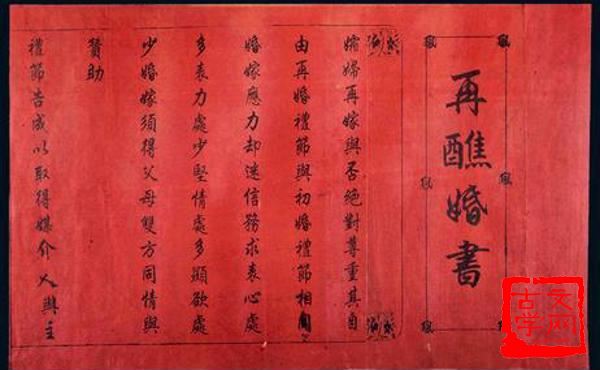 再醮婚書
孀婦再嫁與否絕對尊重其自
由再婚禮節與初婚禮節相同
婚嫁應力却迷信務求衷心處
多衷力處少堅情處多顯欲處
少婚嫁須得父母雙方同情與
贊助
禮節告成以取得媒介人與主
古文学网